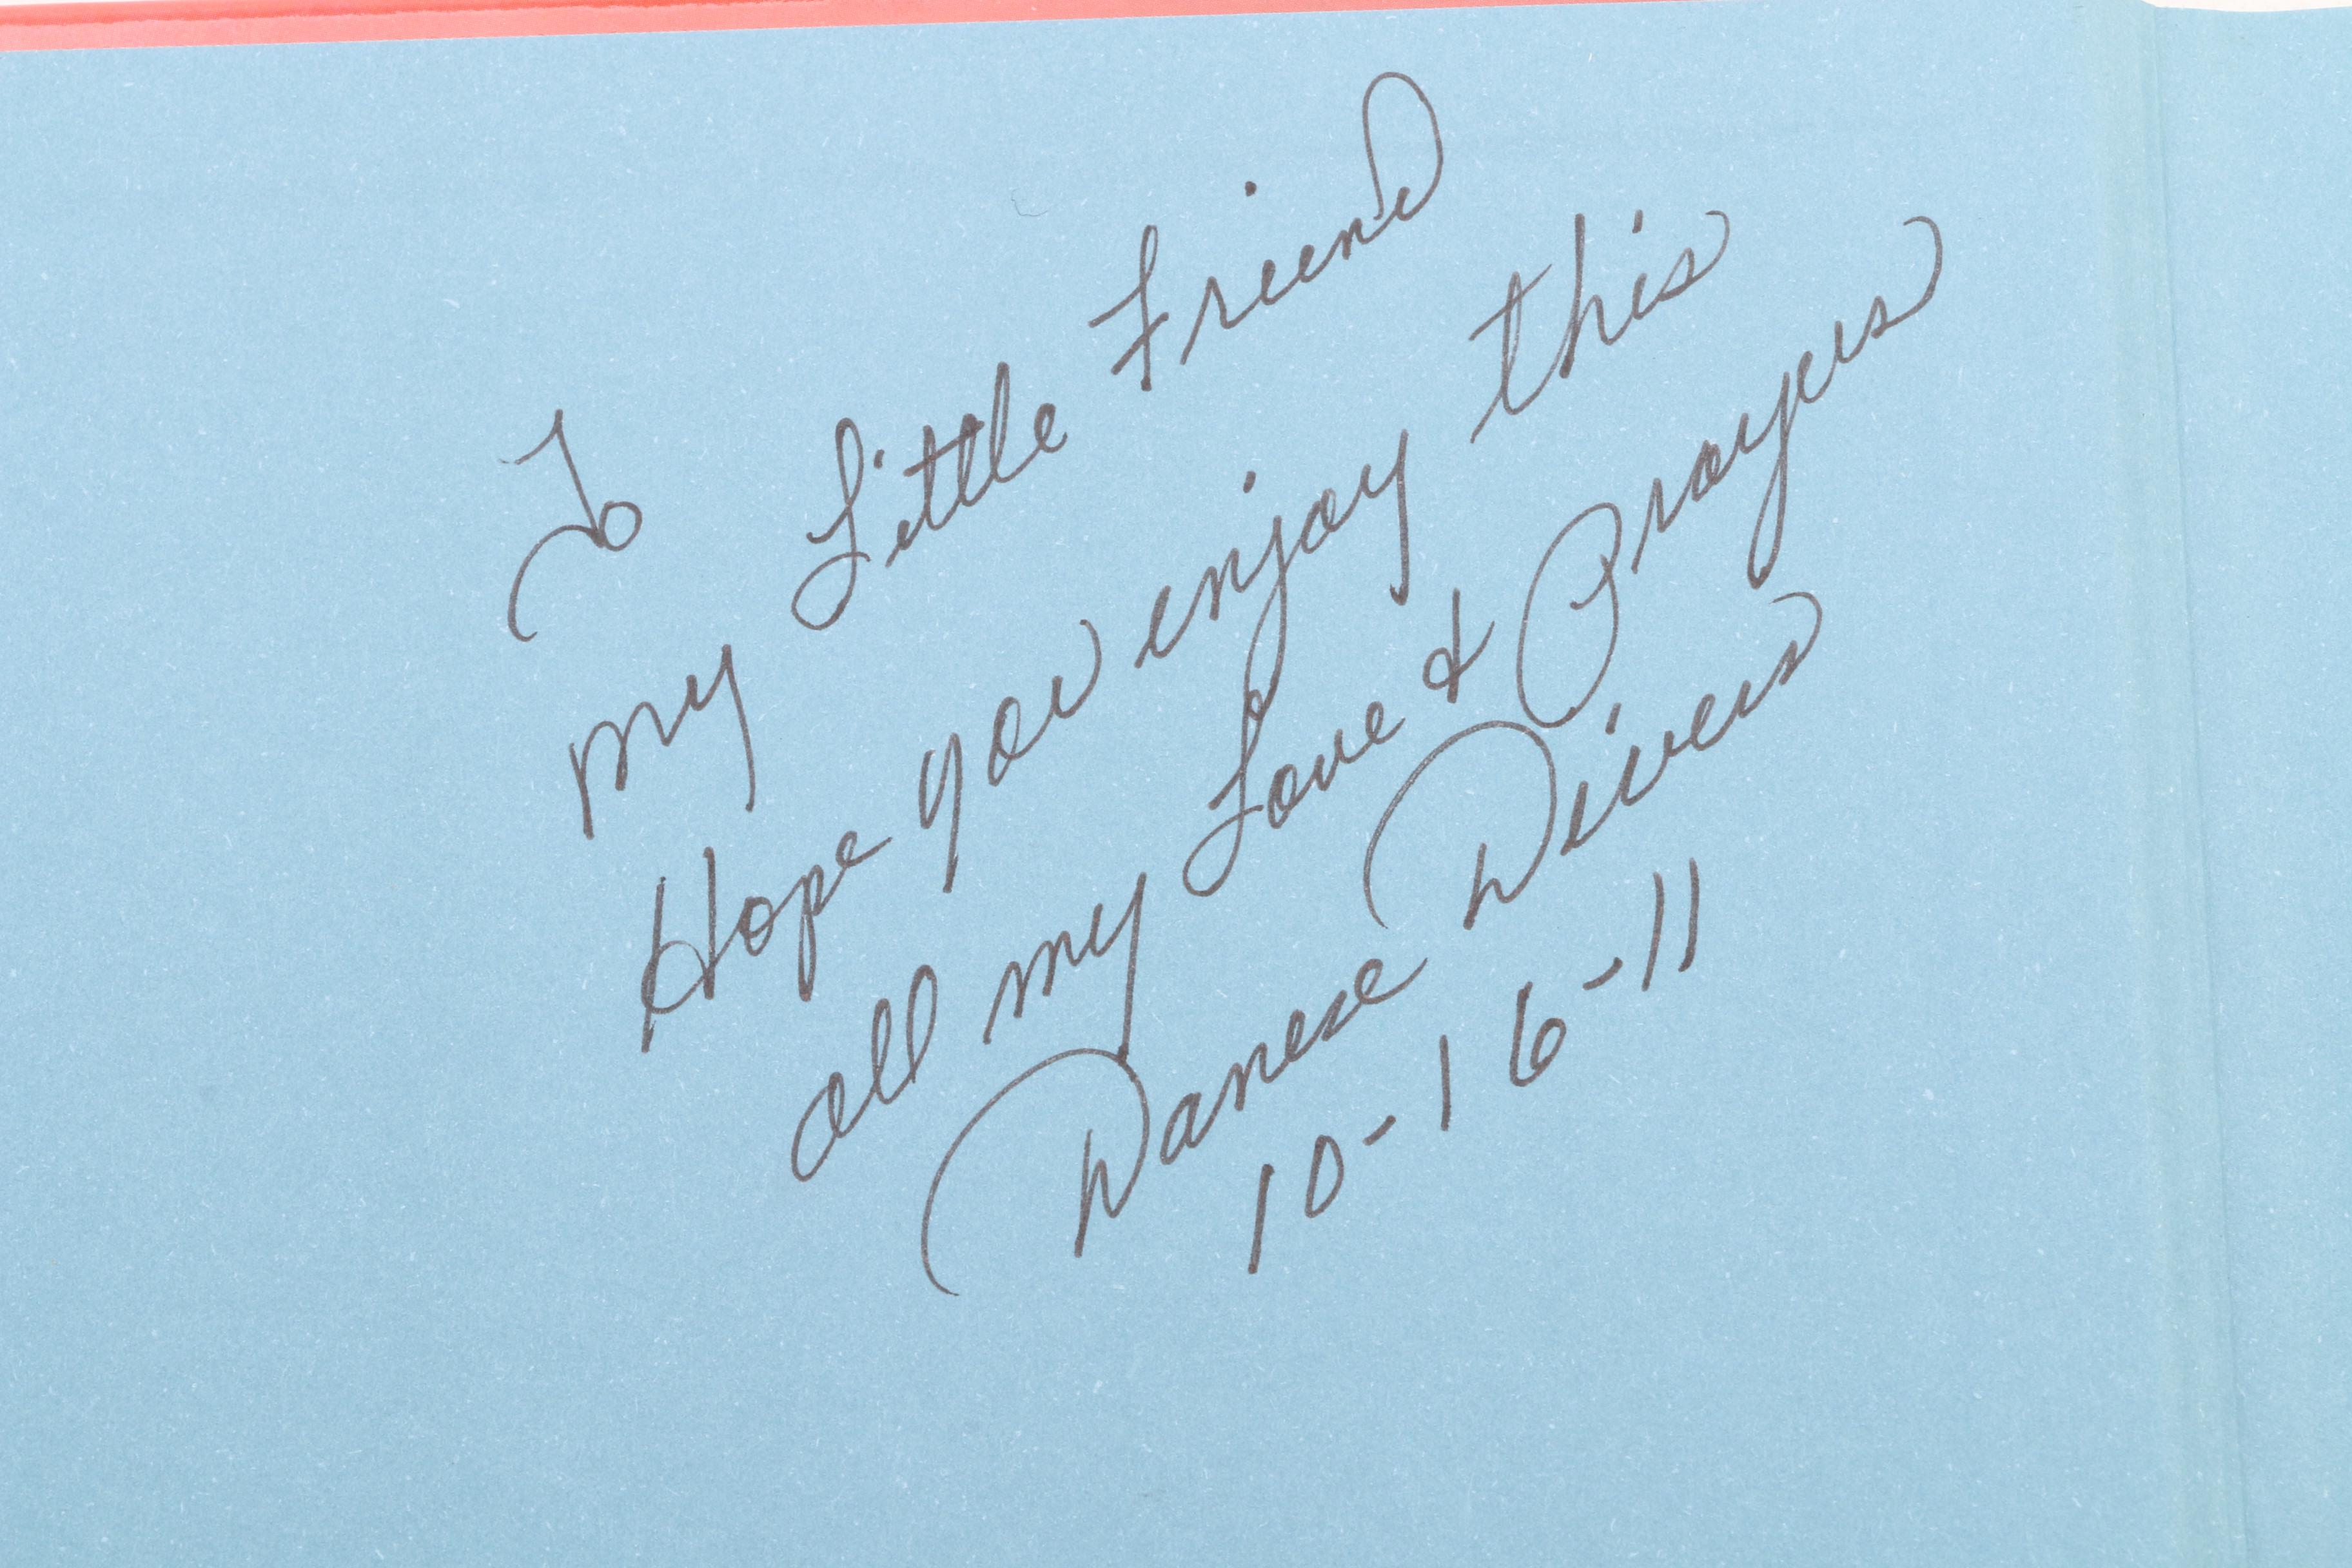 To
my Little Friend
Hope you enjoy this
all my Love & Prayers
Danese Divers
10-16-11